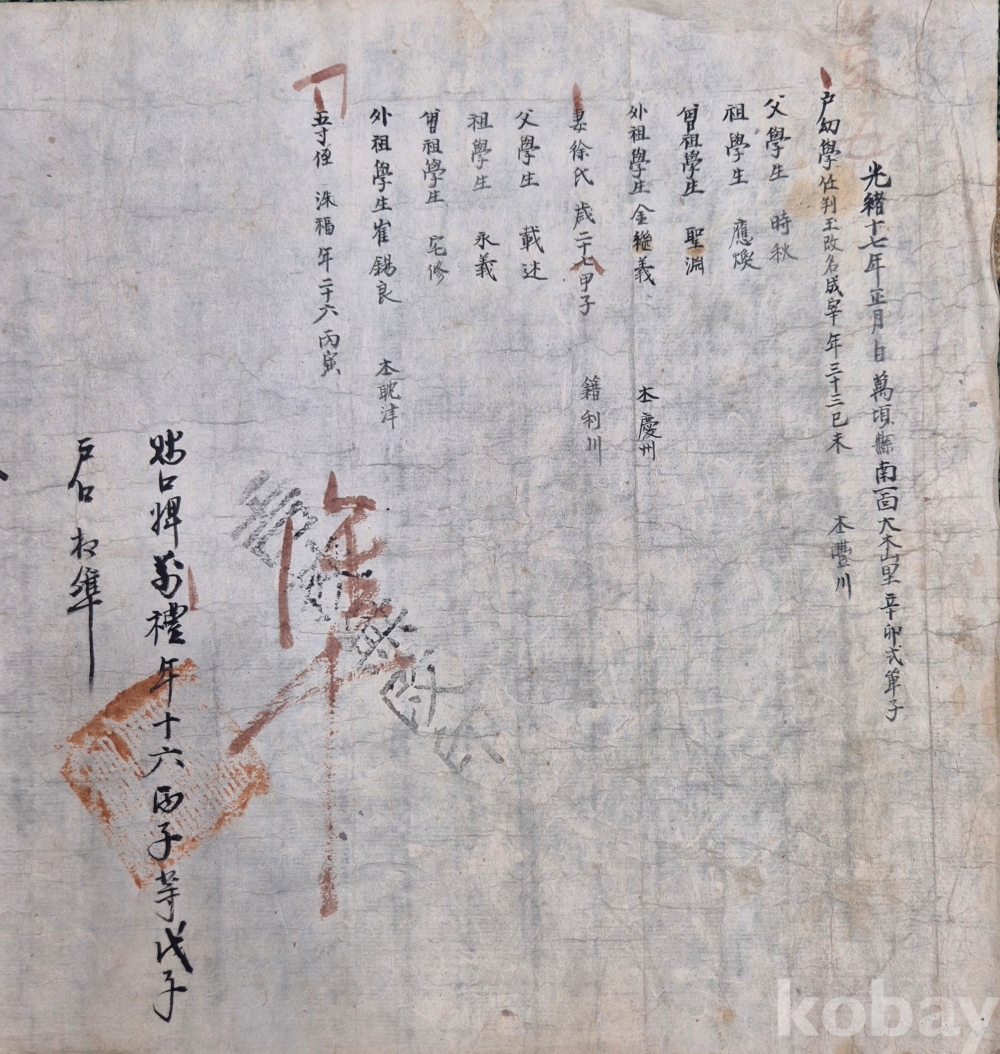 光緖十七年正月 日 萬頃縣南一面大木山里辛卯式單子
戶幼學任判玉改名成宰年三十三己未 本豐川
父學生 時秋
祖學生 應煥
曾祖學生 聖淵
外祖學生金繼義 本慶州
妻徐氏歲二十七甲子 籍利川
父學生 載述
祖學生 永義
曾祖學生 宅修
外祖學生崔錫良 本耽津
五寸侄 洙福年二十六丙寅
準
周挾無改印
賤口婢萬禮年十六丙子等戊子
戶口相準
kobay